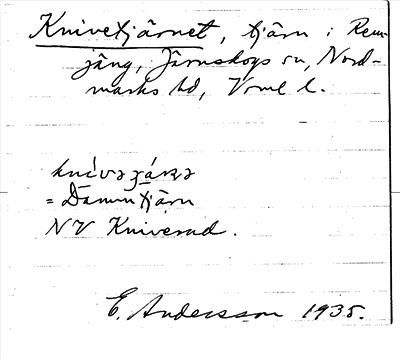 Knivetjärnet, tjärn i Rem-
jäng, Järnskogs sn, Nord-
marks hd, Vrml l.
= Dammtjärn
NV Kniverud.
E. Andersson 1935.